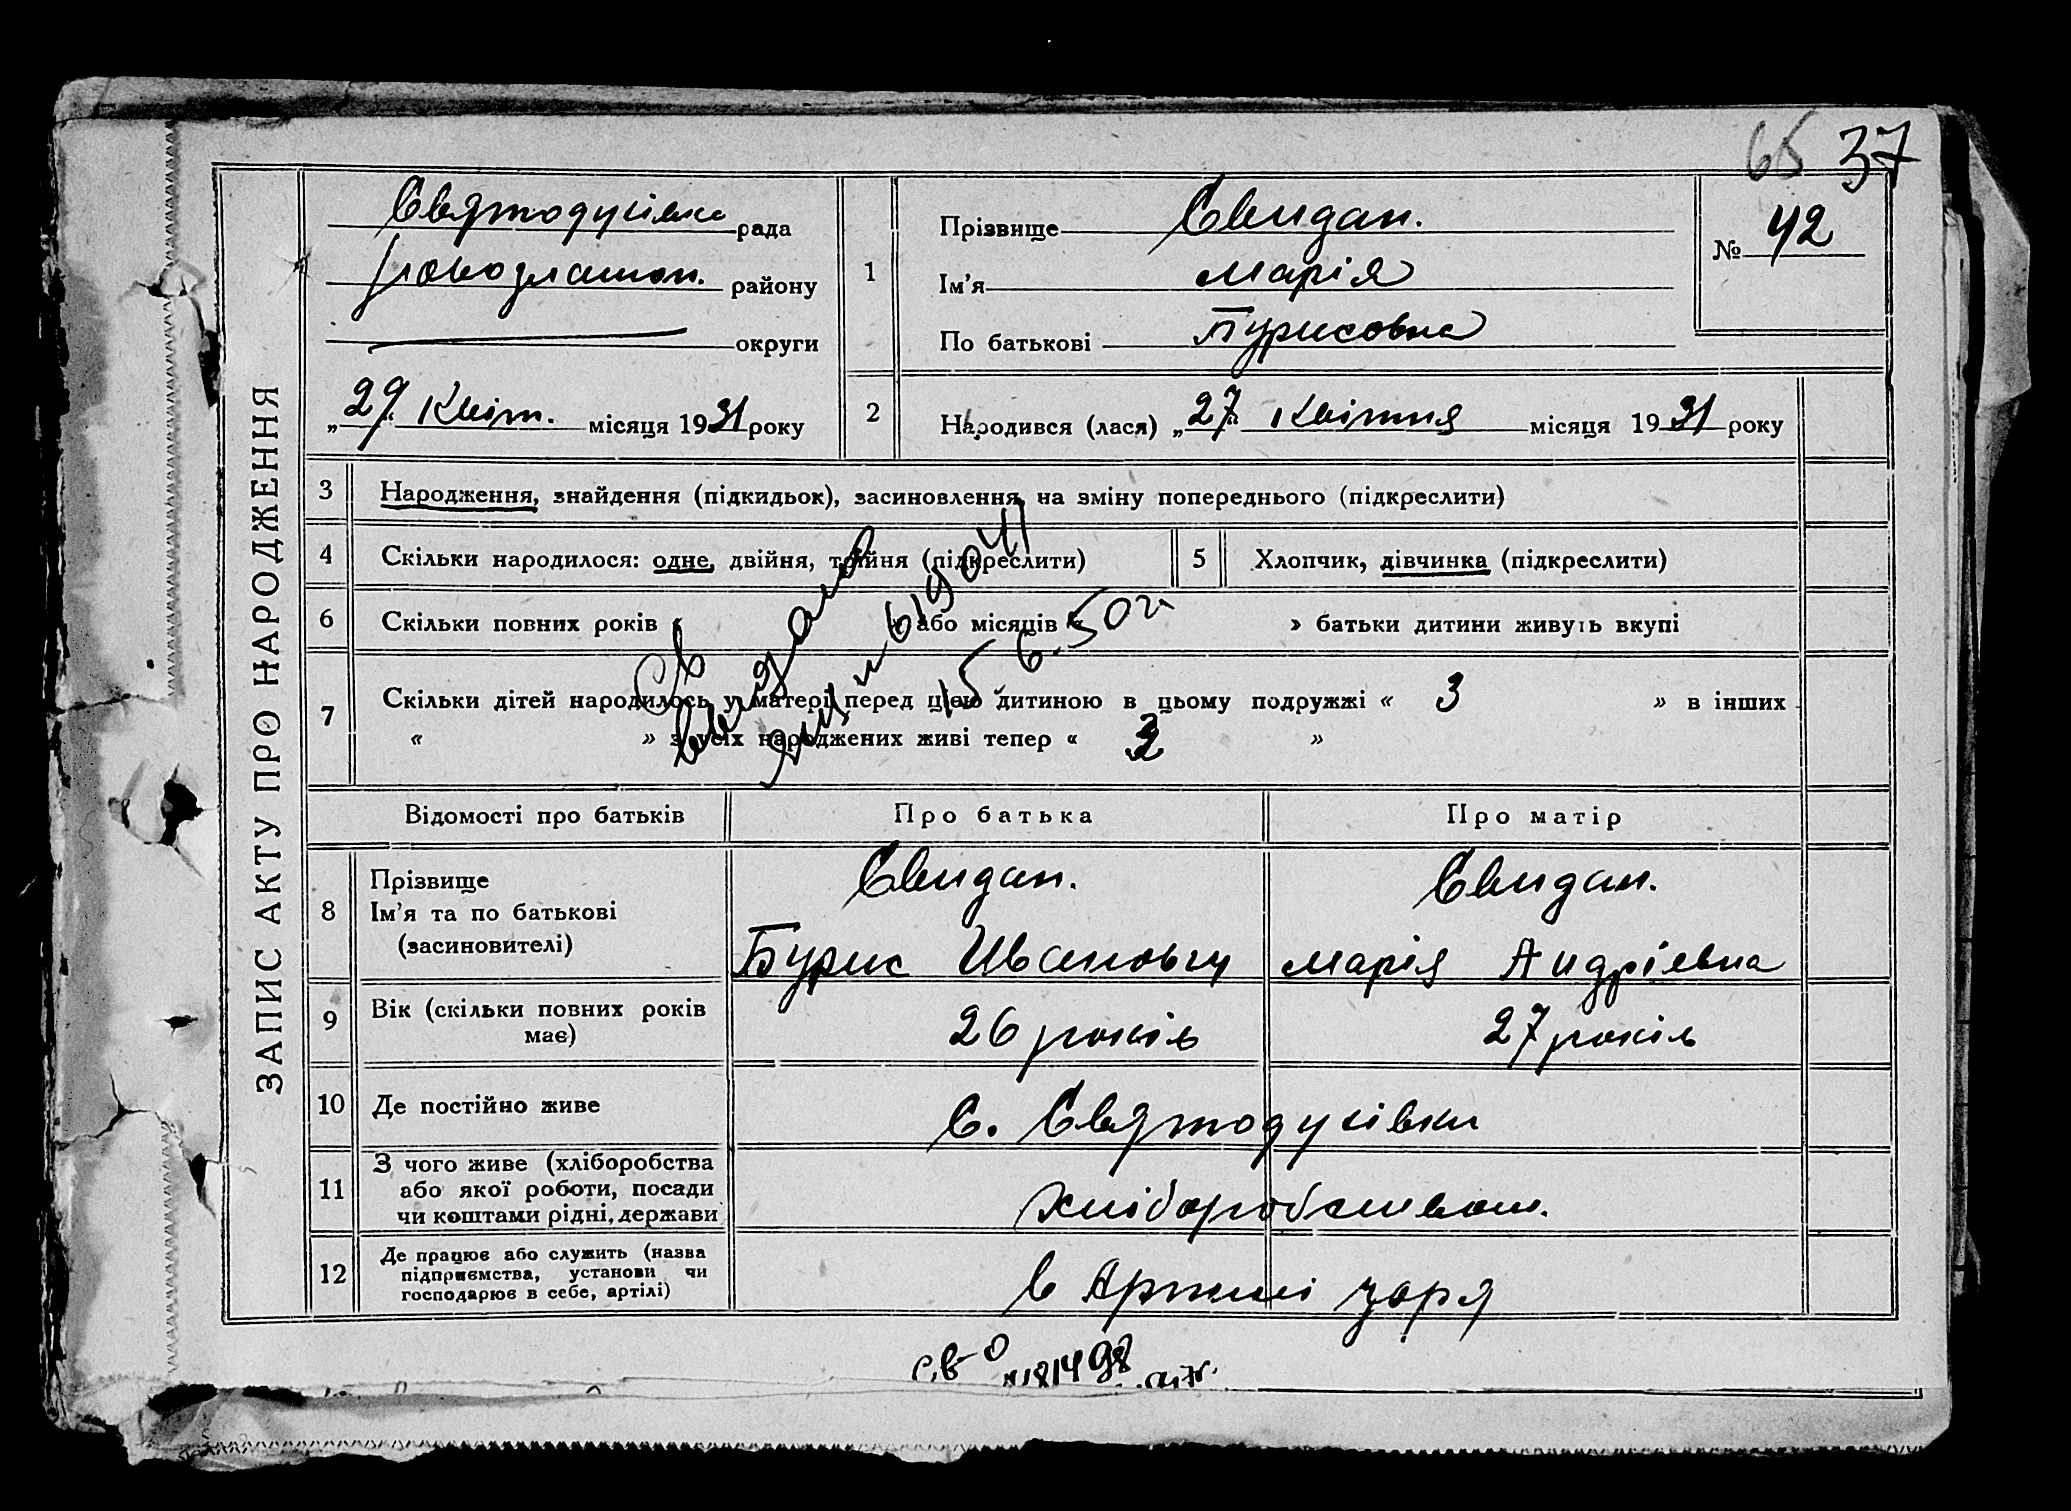 65 37
ЗАПИС АКТУ ПРО НАРОДЖЕННЯ
Святодухівка рада
району
округи
„29 Квіт. місяця 1931 року
№ 42
1
Прізвище Свидан.
Ім'я Марія
По батькові Бурисовна
2 Народився (лася) „27 Квітня місяця 1931 року
3 Народження, знайдення (підкидьок), засиновлення, на зміну попереднього (підкреслити)
4 Скільки народилося: одне, двійня, трійня (підкреслити) 5 Хлопчик, дівчинка (підкреслити)
6 Скільки повних років « » або місяців « » батьки дитини живуть вкупі
7 Скільки дітей народилось у матері перед цією дитиною в цьому подружжі « 3 » в інших
« » з усіх народжених живі тепер « »
15 6.50 г.
Відомості про батьків Про батька Про матір
8 Прізвище
Ім'я та по батькові
(засиновителі)
Свидан. Свидан.
Бурис Иванович Марія Андрієвна
9 Вік (скільки повних років
має)
26 років 27 років
10 Де постійно живе С. Святодухівки
11 З чого живе (хліборобства
або якої роботи, посади
чи коштами рідні, держави
Хліборобством.
12 Де працює або служить (назва
підприємства, установи чи
господарює в себе, артілі)
в Артилі зоря